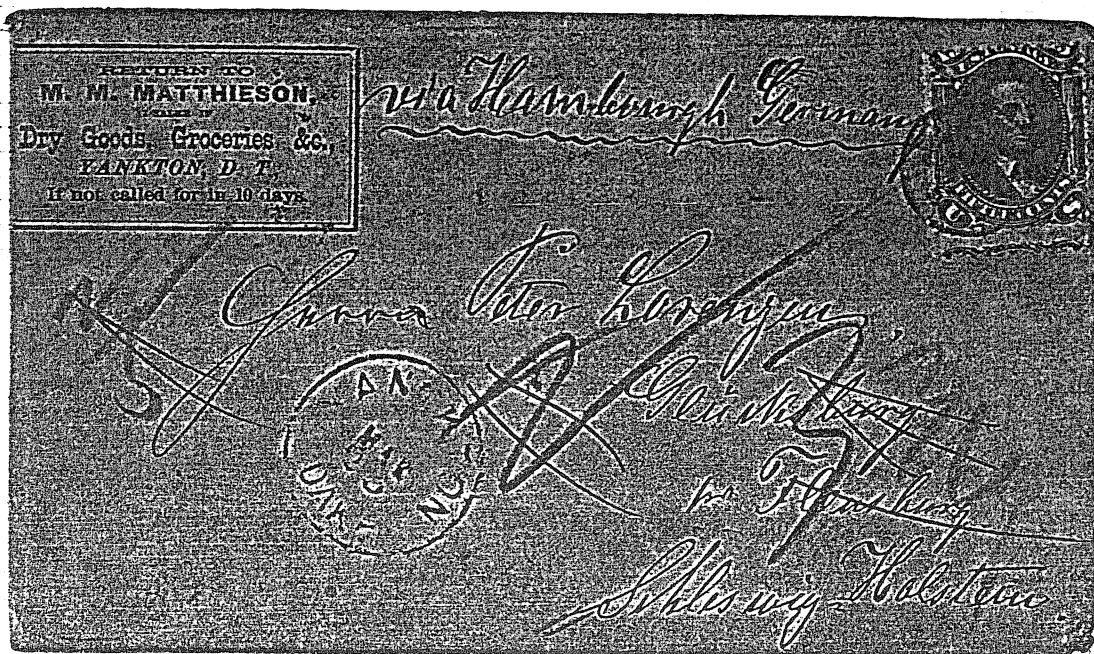 RETURN TO
M. M. MATTHIESON,
DEALER IN
Dry Goods, Groceries &c.,
YANKTON, D. T.,
If not called for in 10 days.
via Hambourgh Germany
Herrn Peter Lorenzen,
Glücksburg
pr Flensburg
Schleswig-Holstein.
YANKTON
DAK